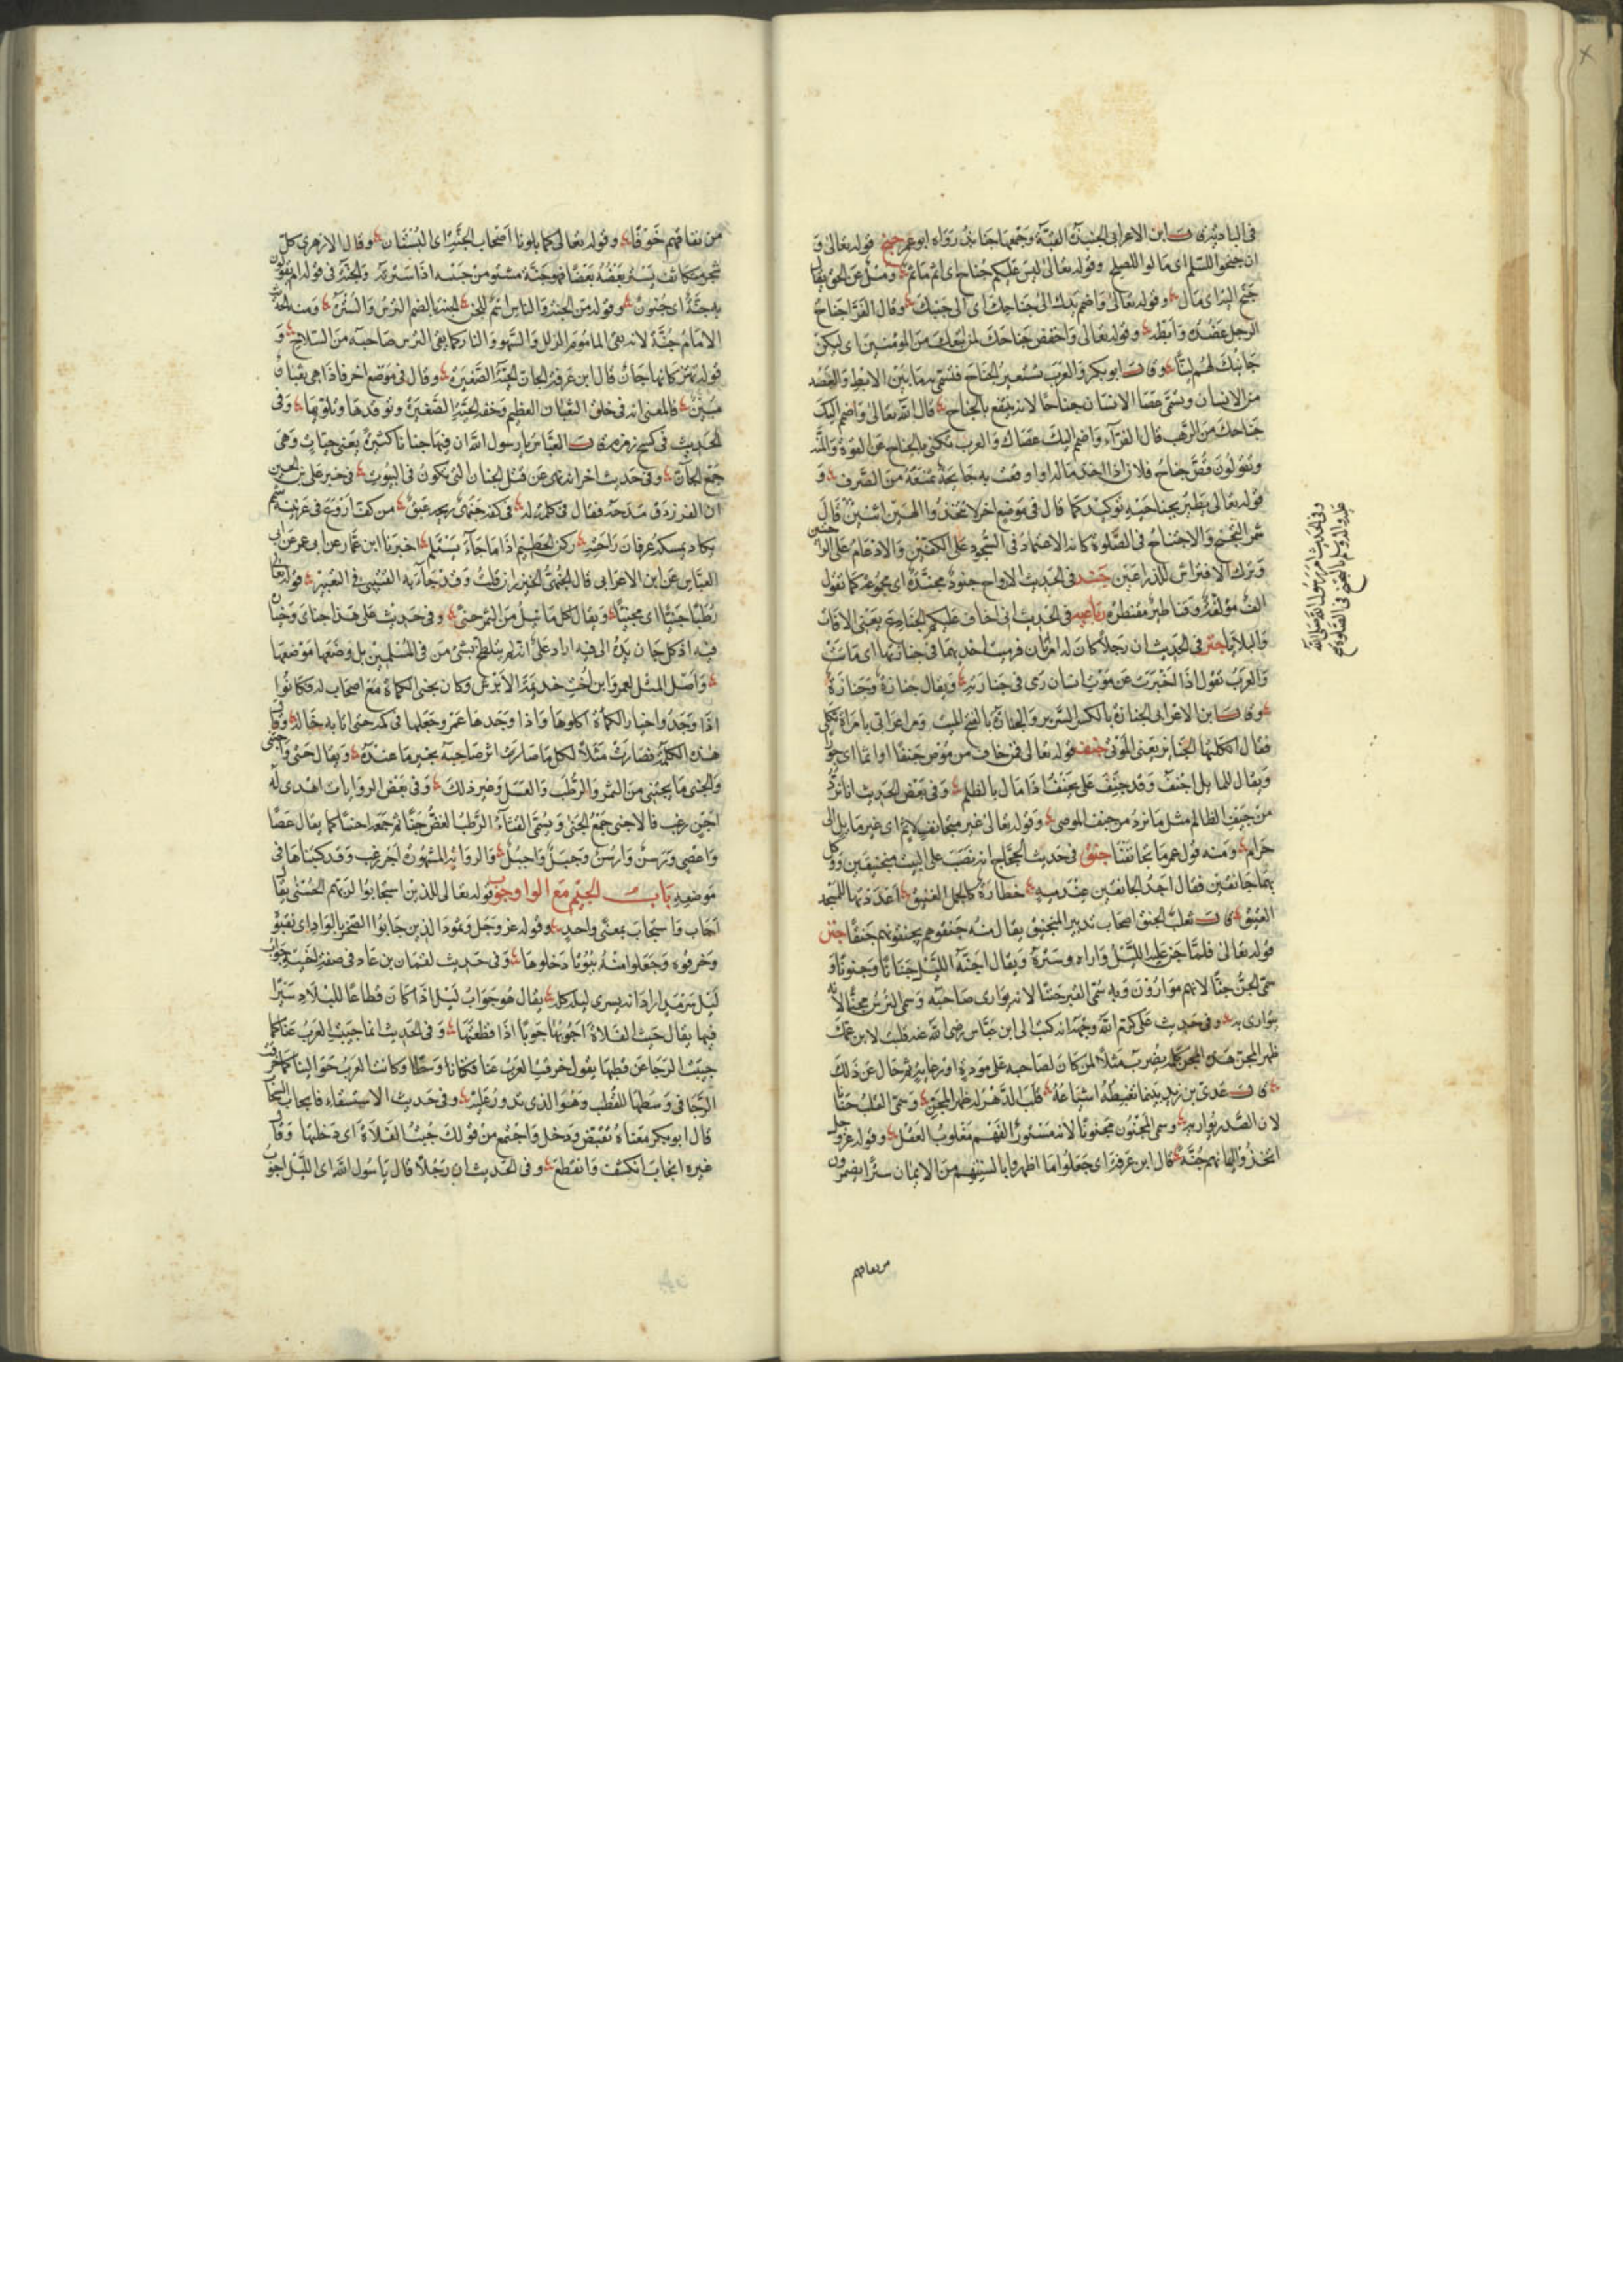 في البادية قال ابن الاعرابي الجنبذة القبة وجمعها جنابذ رواه ابو عمر جنح قوله تعالى و
ان جنحوا للسلم اى مالوا للصلح وقوله تعالى ليس عليكم جناح اى اثم ومثل عن الحق يقال
جنح اليه اى مال وقوله تعالى واضمم يدك الى جناحك اى الى جنبك وقال الفرا جناح
الرجل عضده وابطه وقوله تعالى واخفض جناحك لمن اتبعك من المومنين اى ليكن
جانبك لهم لينا وقال ابو بكر والعرب تستعير الجناح فتسمى به ما بين الابط والعضد
من الانسان وتسمى عصا الانسان جناحا لانه ينتفع بالجناح قال الله تعالى واضمم اليك
جناحك من الرهب قال الفراء واضمم اليك عصاك والعرب تكنى بالجناح عن القوة
وقوله تعالى يطير بجناحيه توكيد كما قال في موضع اخر لا تتخذوا الهين اثنين قال
شمر التجنح والاجتناح في الصلوة كانه الاعتماد في السجود على الكفين والادعام على الراحتين
وترك الافتراش للذراعين جند في الحديث الارواح جنود مجندة اى مجموعة كما تقول
الف مؤلفة وقناطير مقنطرة رباعيه في الحديث انى اخاف عليكم الجنادع يعنى الافات
والبلايا جنز في الحديث ان رجلا كان له امراتان فرميت احديهما في جنازتها اى ماتت
والعرب تقول اذا اخبرت عن موت انسان رمى في جنازته ويقال جنازة وجنازة
وقال ابن الاعرابي الجنازة بالكسر السرير والجنازة بالفتح الميت
فقال الجنائز يعنى الموتى جنف قوله تعالى فمن خاف من موص جنفا او اثما اى جورا
ويقال للمائل اجنف وقد جنف على يجنف اذا مال بالظلم وفي بعض الحديث انا نرد
من جنف الظالم مثل ما نرد من جنف الموصى وقوله تعالى غير متجانف لاثم اى غير مايل الى
حرام ومنه قول عمر ما تجانفنا جنق في حديث الحجاج انه نصب على البيت منجنيقين ووكل
بهما جانقين فقال احد الجانقين عند رميه خطارة كالجمل الفنيق اعددتها للمسجد
العتيق قال ثعلب الجنق اصحاب تدبير المنجنيق يقال منه جنقوهم يجنقونهم جنقا جنن
قوله تعالى فلما جن عليه الليل واراه وستره ويقال اجنه الليل جنانا وجنونا و
سمى الجن جنا لانهم متوارون وبه سمى القبر جننا لانه يوارى صاحبه وسمى الترس مجنا لانه
يتوارى به وفي حديث على كرم الله وجهه انه كتب الى ابن عباس رضى الله عنه قلبت لابن عمك
ظهر المجن هذه كلمة يضرب مثلا لمن كان لصاحبه على مودة او رعاية ثم حال عن ذلك
قال عدى بن زيد بينما تغبطه اشياعه قلب الدهر له ظهر المجن وسمى القلب جنانا
لان الصدر يواريه وسمى المجنون مجنونا لانه مستور الفهم مغلوب العقل وقوله عز وجل
اتخذوا ايمانهم جنة قال ابن عرفة اى جعلوا ما اظهروا بالسنتهم من الايمان سترا يضمرون
من نفاقهم
وفي الحديث امر رسول الله صلى الله
عليه واله وسلم بالتجنح في الصلوة
من نفاقهم خوفا وقوله تعالى كما بلونا اصحاب الجنة اى البستان وقال الازهرى كل
شجر متكاثف يستر بعضه بعضا فهو جنة مشتق من جننته اذا سترته والجنة في قوله ام يقولون
به جنة اى جنون وقوله من الجنة والناس الجنة بالضم الترس والسترة ومنه الحديث
الامام جنة لانه يقى الماموم الزلل والسهو والنار كما يقى الترس صاحبه من السلاح و
قوله تهتز كانها جان قال ابن عرفة الجان الحية الصغيرة وقال في موضع اخر فاذا هي ثعبان
مبين فالمعنى انه في خلق الثعبان العظيم وخفة الحية الصغيرة وتوقدها وتلويها وفي
الحديث في كسح زمزم قال العباس يا رسول الله ان فيها جنانا كثيرة يعنى حيات وهى
جمع الجان وفي حديث اخر انه نهى عن قتل الجنان التى تكون في البيوت في خبر على بن الحسين
ان الفرزدق مدحه فقال في كلمة له في كفه جنهى ريحه عبق من كف اروع في عرنينه شمم
يكاد يمسكه عرفان راحته ركن الحطيم اذا ما جاء يستلم اخبرنا ابن عمار عن ابى عمر عن ابى
العباس عن ابن الاعرابي قال الجنهى الخيزران قلت وقد جاء به القتيبى في التفسير قوله تعالى
رطبا جنيا اى مجنيا ويقال لكل ما نيل من الثمر جنى وفي حديث على هذا جناى وخياره
فيه اذ كل جان يده الى فيه اراد على انه لم يتلطخ بشئ من فئ المسلمين بل وضعها مواضعها
واصل المثل لعمرو ابن اخت جذيمة الابرش وكان يجنى الكماة مع اصحاب له فكانوا
اذا وجدوا خيار الكماة اكلوها واذا وجدها عمرو جعلها في كمه حتى اتا به خاله وقال
هذه الكلمة فصارت مثلا لكل من آثر صاحبه بخير ما عنده ويقال جنى واجتنى
والجنى ما يجتنى من الثمر والرطب والعسل وغير ذلك وفي بعض الروايات اهدى له
اجن زغب فالاجنى جمع الجنى ويسمى القثاء الرطب الغض جنا ثم جمعه اجنيا كما يقال عصا
واعصى ورسن وارسن وجبل واجبل والرواية المشهورة اجر زغب وقد كتبناها في
موضعه باب الجيم مع الواو جوب قوله تعالى للذين استجابوا لربهم الحسنى يقال
اجاب واستجاب بمعنى واحد وقوله عز وجل وثمود الذين جابوا الصخر بالواد اى نقبوا
وخرقوه وجعلوا منه بيوتا دخلوها وفي حديث لقمان بن عاد في صفة اخيه جواب
ليل سرمد اراد انه يسرى ليله كله يقال هو جواب ليل اذا كان قطاعا للبلاد سيرا
فيها يقال جبت الفلاة اجوبها جوبا اذا قطعتها وفي الحديث انما جيبت العرب عنا كما
جيبت الرحا عن قطبها يقول خرقت العرب عنا فكنا وسطا وكانت العرب حوالينا كما خرقت
الرحا في وسطها للقطب وهو الذى تدور عليه وفي حديث الاستسقاء فانجاب السحاب
قال ابو بكر معناه تقبض ودخل واجتمع من قولك جبت الفلاة اى دخلتها وقال
غيره انجاب انكشف وانقطع وفي الحديث ان رجلا قال يا رسول الله اى الليل اجوب